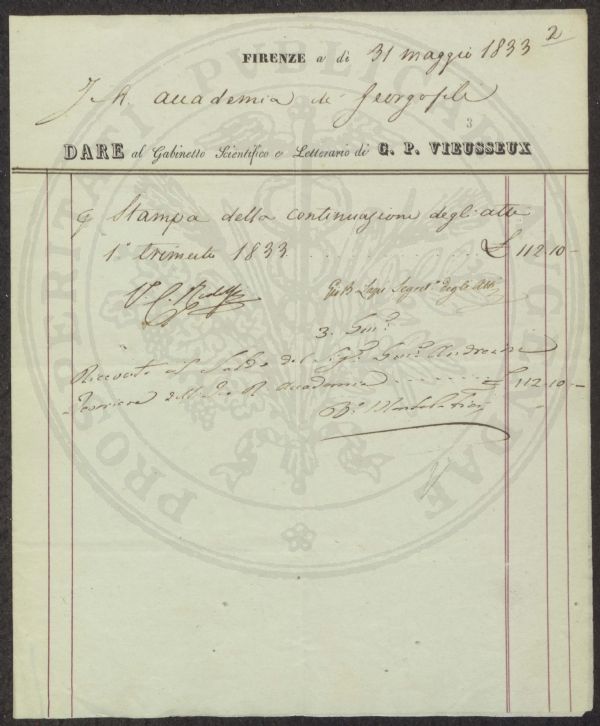 2
FIRENZE a dì 31 maggio 1833
I. R. Accademia de Georgofili
3
DARE al Gabinetto Scientifico e Letterario di G. P. VIEUSSEUX
Stampa della continuazione degli atti
1° trimestre 1833 . . . . . . . . . . £ 112.10 -
V. C. Ridolfi
Segret.° degli Atti
3. Giu.°
Ricevuto il Saldo dal Sig.
Tesoriere dell' Accademia . . . . . . . £ 112.10. -
PROSPERITATI PUBLICAE AUGENDAE